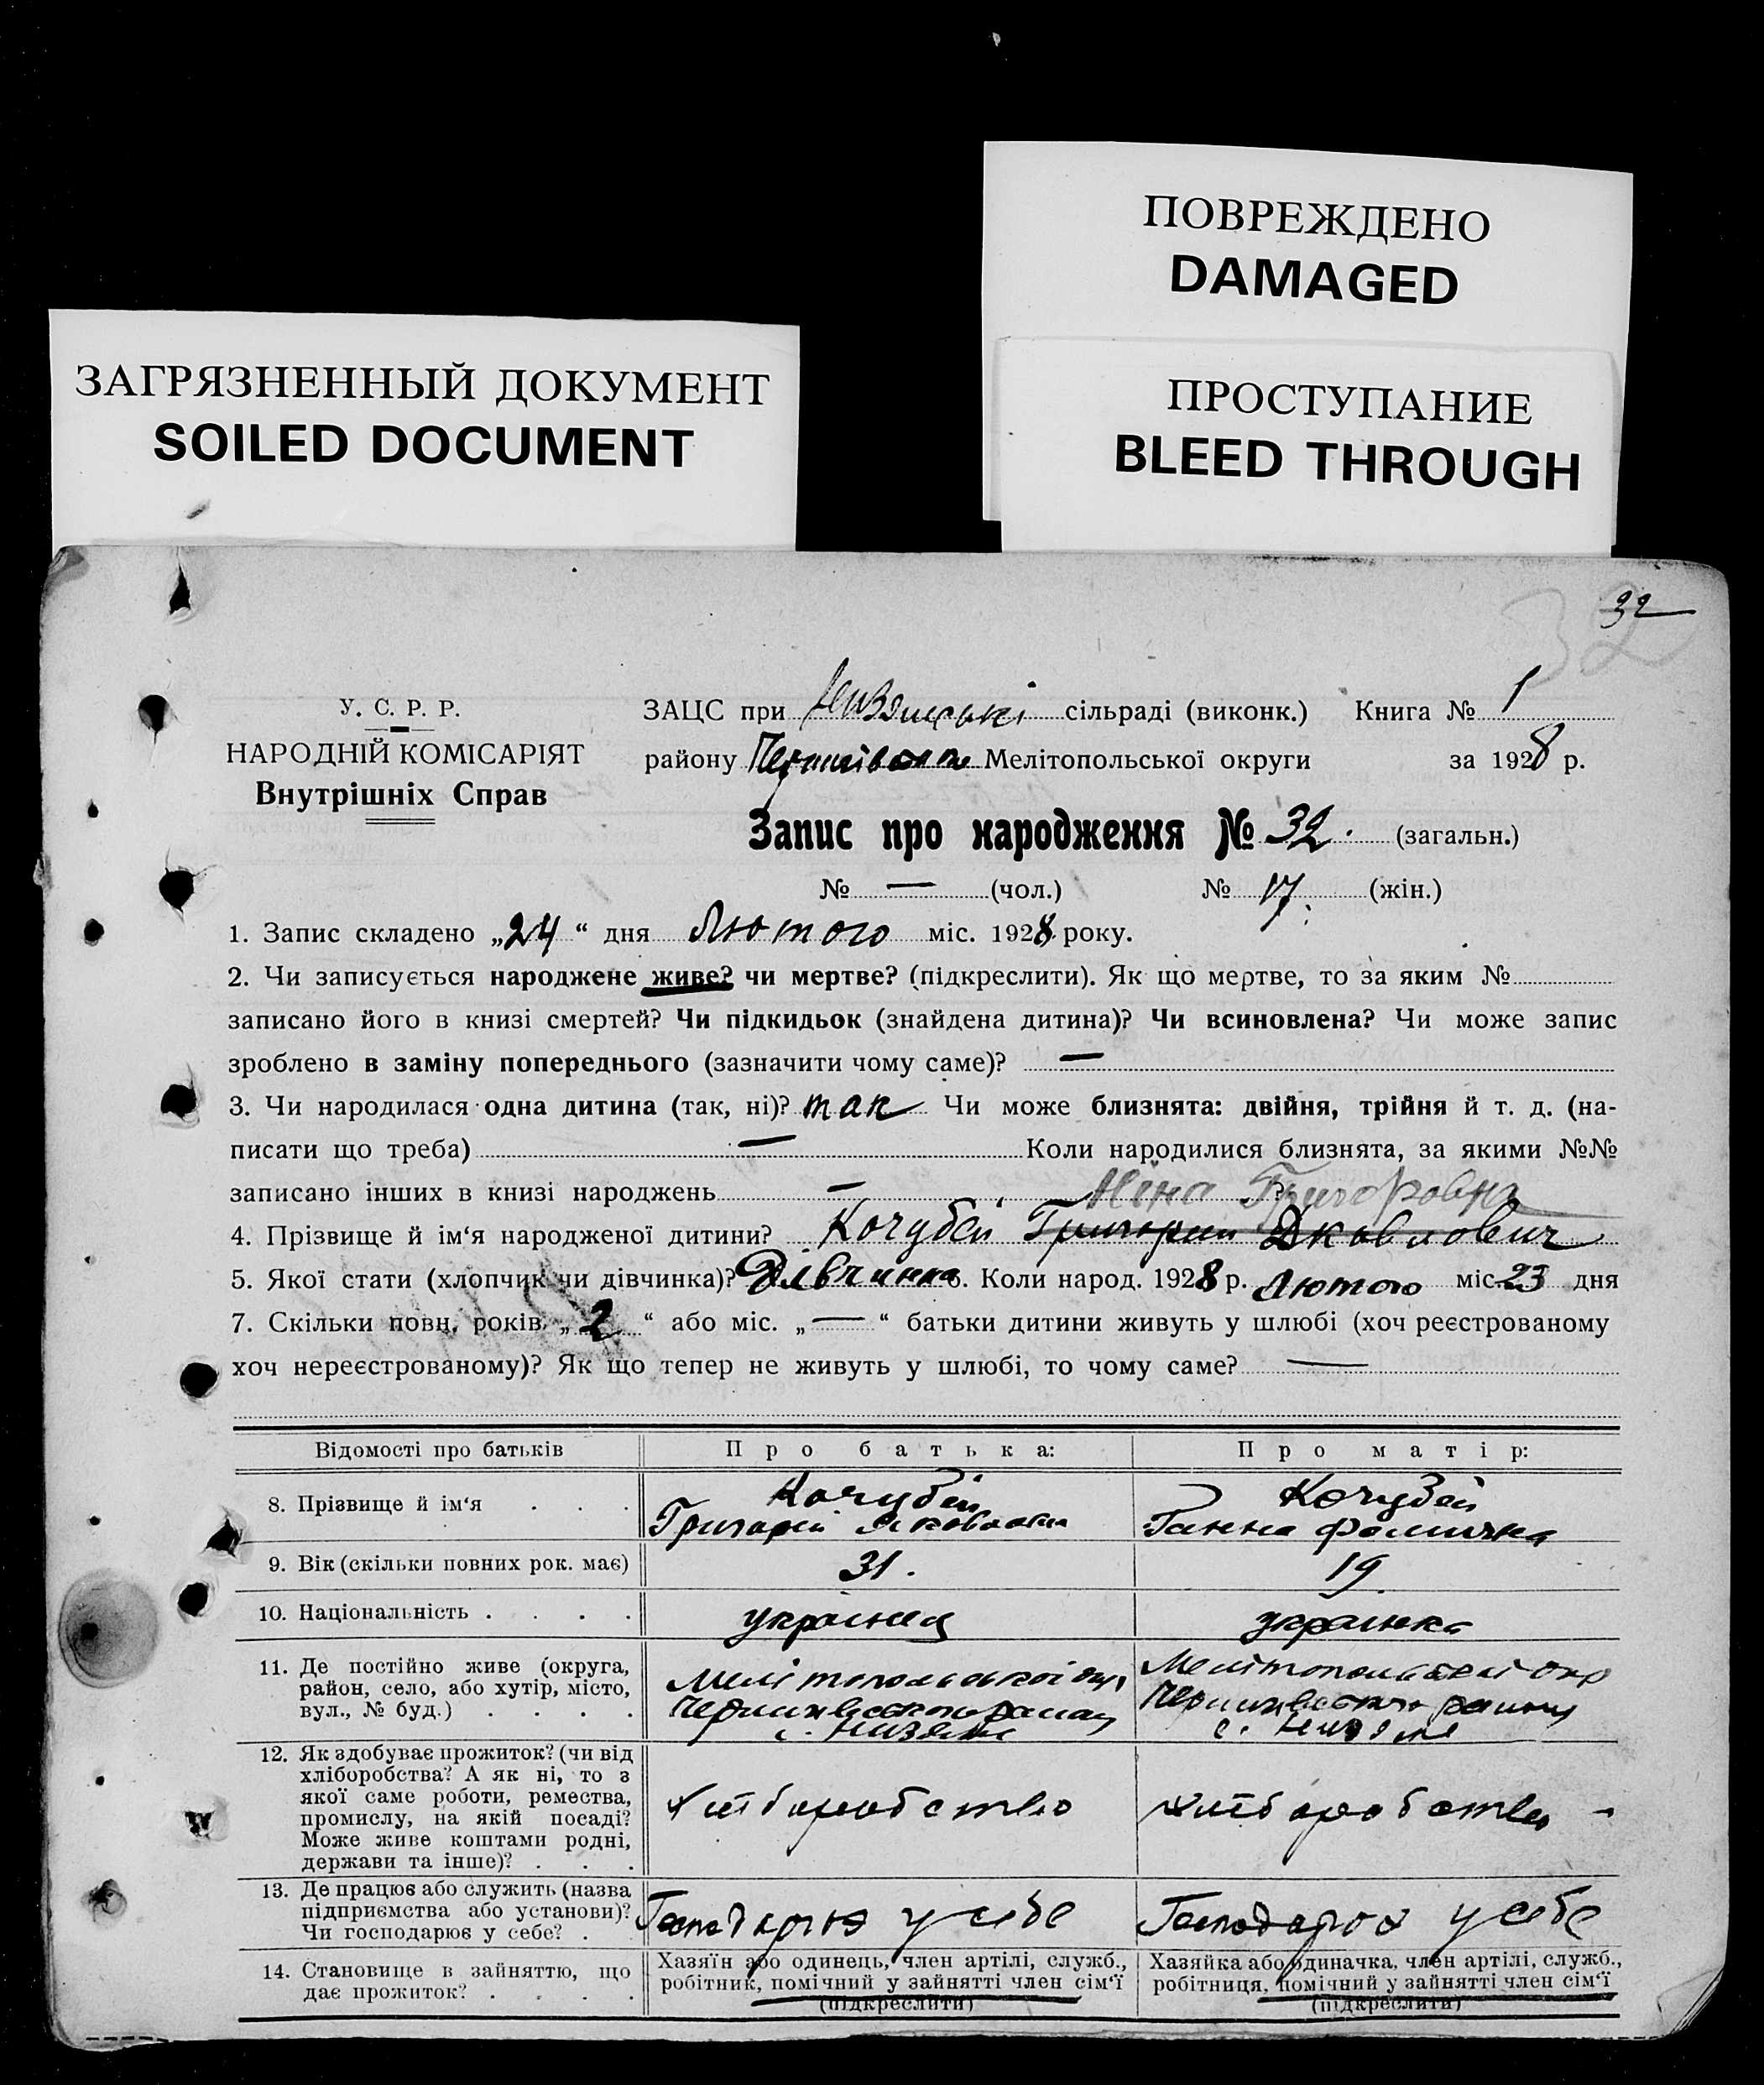 ПОВРЕЖДЕНО
DAMAGED
ЗАГРЯЗНЕННЫЙ ДОКУМЕНТ
SOILED DOCUMENT
ПРОСТУПАНИЕ
BLEED THROUGH
32
32
У. С. Р. Р.
НАРОДНІЙ КОМІСАРІЯТ
Внутрішніх Справ
ЗАЦС при сільраді (виконк.) Книга № 1
району Мелітопольської округи за 1928 р.
Запис про народження № 32. (загальн.)
№ — (чол.) № 17. (жін.)
1. Запис складено „24“ дня Лютого міс. 1928 року.
2. Чи записується народжене живе? чи мертве? (підкреслити). Як що мертве, то за яким №
записано його в книзі смертей? Чи підкидьок (знайдена дитина)? Чи всиновлена? Чи може запис
зроблено в заміну попереднього (зазначити чому саме)? —
3. Чи народилася одна дитина (так, ні)? так Чи може близнята: двійня, трійня й т. д. (на-
писати що треба) — Коли народилися близнята, за якими №№
записано інших в книзі народжень — ?
Ніна Григоровна
4. Прізвище й ім‘я народженої дитини? Кочубей Григорий Яковлович
5. Якої стати (хлопчик чи дівчинка)? Дівчинка 6. Коли народ. 1928 р. Лютого міс. 23 дня
7. Скільки повн. років „2“ або міс. „—“ батьки дитини живуть у шлюбі (хоч реєстрованому
хоч нереєстрованому)? Як що тепер не живуть у шлюбі, то чому саме? —
Відомості про батьків Про батька: Про матір:
8. Прізвище й ім‘я Кочубей Кочубей
Григорій Ганна
9. Вік (скільки повних рок. має) 31. 19
10. Національність українец українка
11. Де постійно живе (округа,
район, село, або хутір, місто,
вул., № буд.)
Мелітопольської окр Мелітопольської окр
району району
с. Низяни с. Низяни
12. Як здобуває прожиток? (чи від
хліборобства? А як ні, то з
якої саме роботи, ремества,
промислу, на якій посаді?
Може живе коштами родні,
держави та інше)?
Хліборобство хліборобство
13. Де працює або служить (назва
підприємства або установи)?
Чи господарює у себе?
Господарює у себе Господарює у себе
14. Становище в зайняттю, що
дає прожиток?
Хазяїн або одинець, член артілі, служб.,
робітник, помічний у зайнятті член сім‘ї
(підкреслити)
Хазяйка або одиначка, член артілі, служб.,
робітниця, помічний у зайнятті член сім‘ї
(підкреслити)